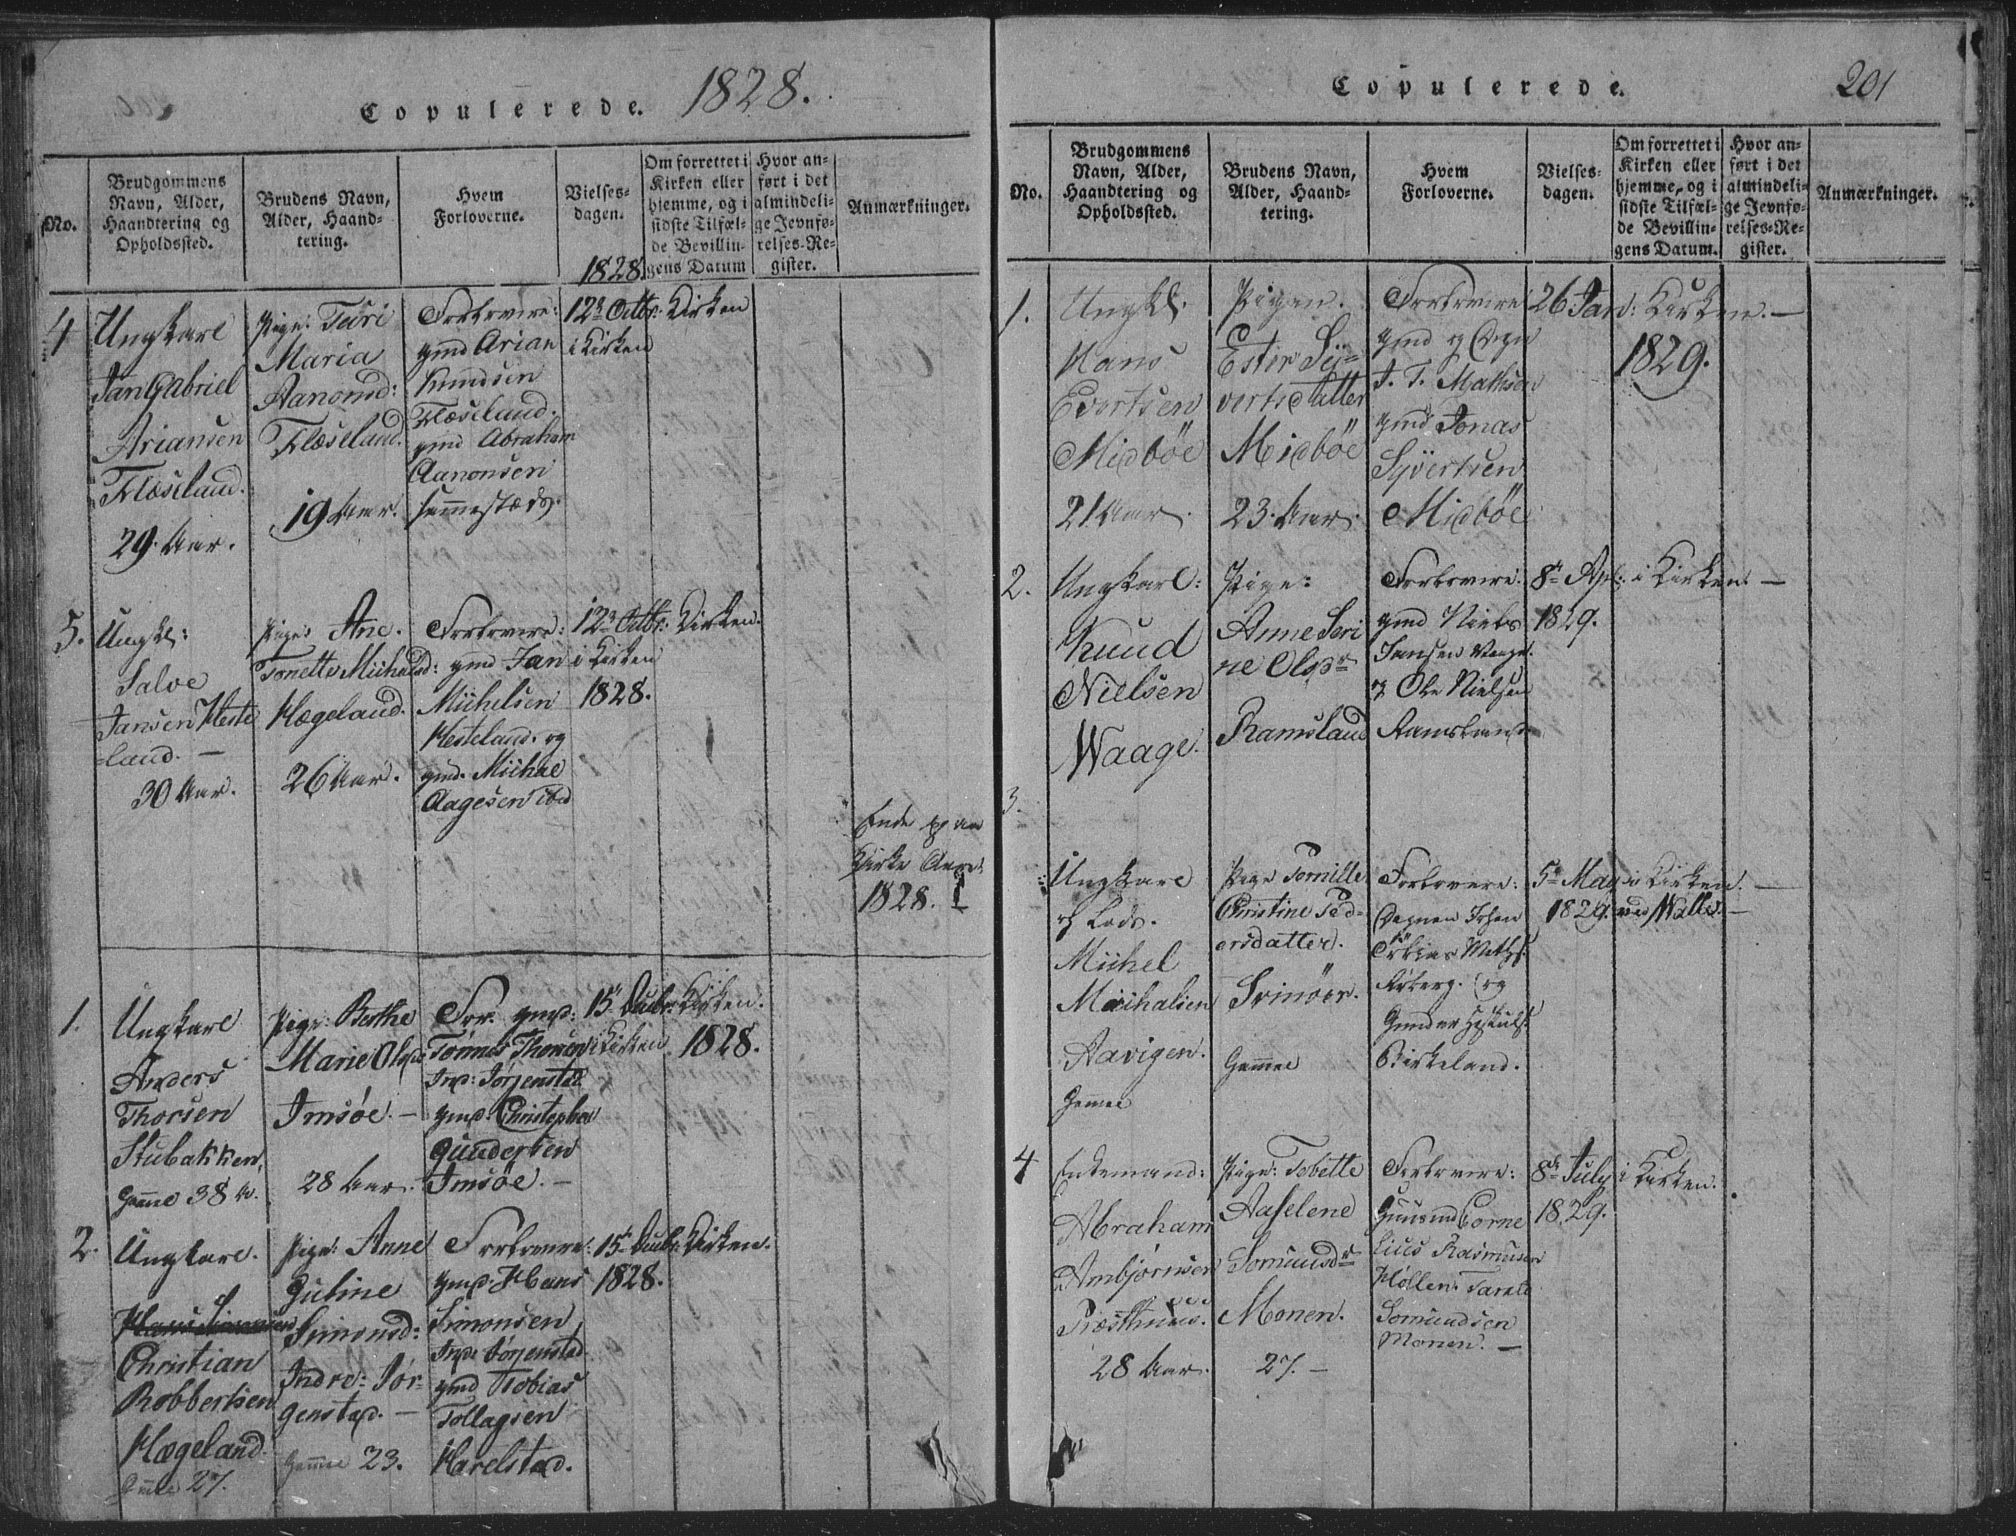 Copulerede. 1828.
No.
Brudgommens
Navn, Alder,
Haandtering og
Opholdssted.
Brudens Navn,
Alder, Haand-
tering.
Hvem
Forloverne.
Vielses-
dagen.
1828.
Om forrettet i
Kirken eller
hjemme, og i
sidste Tilfæl-
de Bevillin-
gens Datum
Hvor an-
ført i det
almindeli-
ge Jevnfø-
relses-Re-
gister.
Anmærkninger.
4
Ungkarl
Jan Gabriel
Ariansen
Flæseland.
29. Aar.
Pige: Turi
Maria
Aanonsd:
Flæseland.
19 Aar.
Forlovere:
gmd Arian
Knudsen
Flæseland.
gmd Abraham
Aanonsen
sammestæds.
12te Octbr.
i Kirken
Kirken
5.
Ungkl:
Salve
Jansen Heste
land. —
30 Aar.
Pige: Ane.
Tonette Michelsd:
Hægeland.
26 Aar.
Forlovere:
gmd Jan
Michelsen
Hesteland. og
gmd. Michae
Aagesen ibid
12te Octbr.
i Kirken
1828.
Kirken.
Ende paa
Kirke Aaret
1828.
1.
Ungkarl
Anders
Thorsen
Stubakken,
Gamel 38 A.
Pige: Berthe
Marie Olsd:
Imsøe. —
28 Aar.
For. gmd:
Tønnes Thorsen
Ind: Jørjenstad
gmd: Christopher
Gundersen
Imsøe. —
15de Decbr.
i Kirken
Kirken.
1828.
2.
Ungkarl.
Christian
Robbertsen
Hægeland.
Gamel 27.
Pige: Anne
Guline
Simonsd:
Indre: Jør-
genstad. —
Gamel 23.
Forlovere:
gmd: Hans
Simonsen
Ind: Jørjenstad
gmd Tobias
Tollagsen
Harelstad.
15de Decbr.
1828.
Kirken.
Copulerede.
201
No.
Brudgommens
Navn, Alder,
Haandtering og
Opholdssted.
Brudens Navn,
Alder, Haand-
tering.
Hvem
Forloverne.
Vielses-
dagen.
Om forrettet i
Kirken eller
hjemme, og i
sidste Tilfæl-
de Bevillin-
gens Datum.
Hvor an-
ført i det
almindeli-
ge Jevnfø-
relses-Re-
gister.
Anmærkninger.
1.
Ungkl.
Hans
Evertsen
Midbøe
21 Aar.
Pigen.
Ester Sy-
vertsdatter
Midbøe
23. Aar.
Forlovere
gmd og Degn
J. T. Mathsen
gmd Jonas
Syvertsen
Midbøe
26 Jan:
Kirken. —
1829.
2.
Ungkarl:
Knud
Nielsen
Waage.
Pige:
Anne Seri
ne Olsdr
Ramsland
Forlovere.
gmd Niels
Jansen Waage.
Ole Nielsen
Ramsland
8de Apl:
1829.
i Kirken. —
3.
Ungkarl
og Lods.
Michel
Michalsen
Aavigen.
Gammel
Pige Tomille
Christine Ped-
ersdatter.
Svinøer.
Gammel
Forlovere:
Degnen Johan
Tobias Maths.
Birkeland.
5te May
1829.
i Kirken. —
ved Walle. —
4
Enkemand:
Abraham
Ambjørnsen
Præsthuus.
28 Aar.
Pige: Tobette
Aaselene
Somundsdr
Monen.
27. —
Forlovere:
Corne
lius Rasmusen
Høllen. Tarald
Somundsen
Monen. —
8de July
1829.
i Kirken.